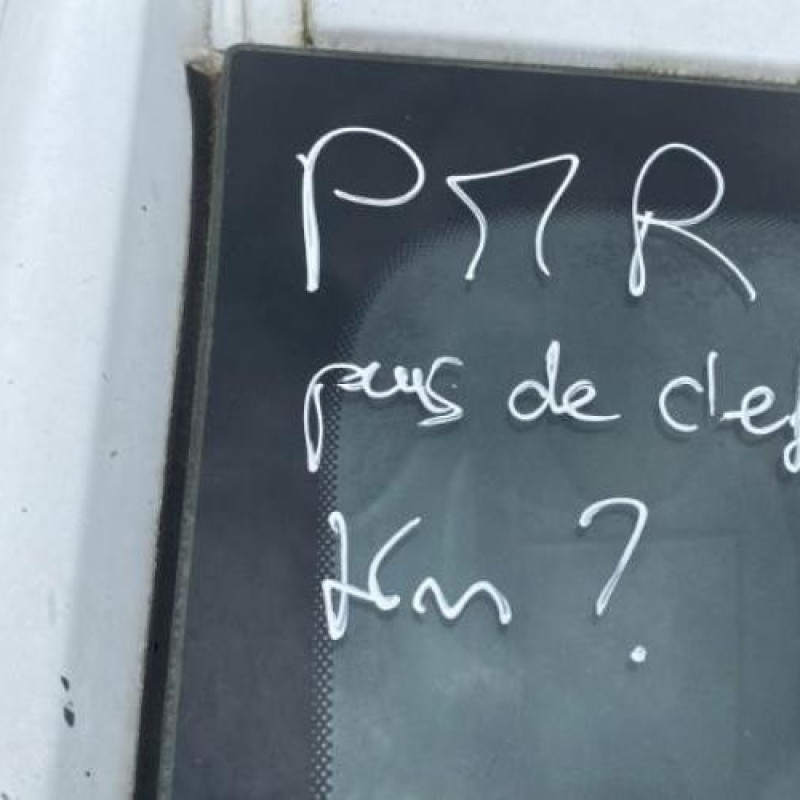 PMR
pas de clef
Km ?